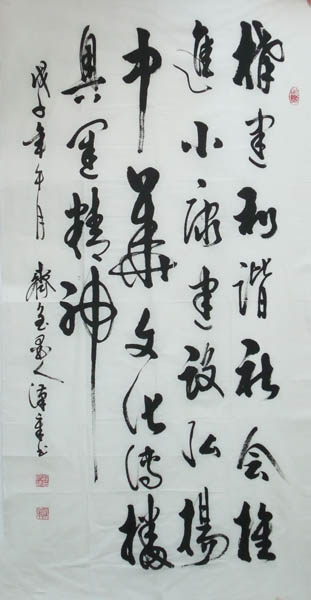 構建和諧社会推
進小康建設弘揚
中華文化傳播
奥運精神
戊子年午月 墨人漢章书